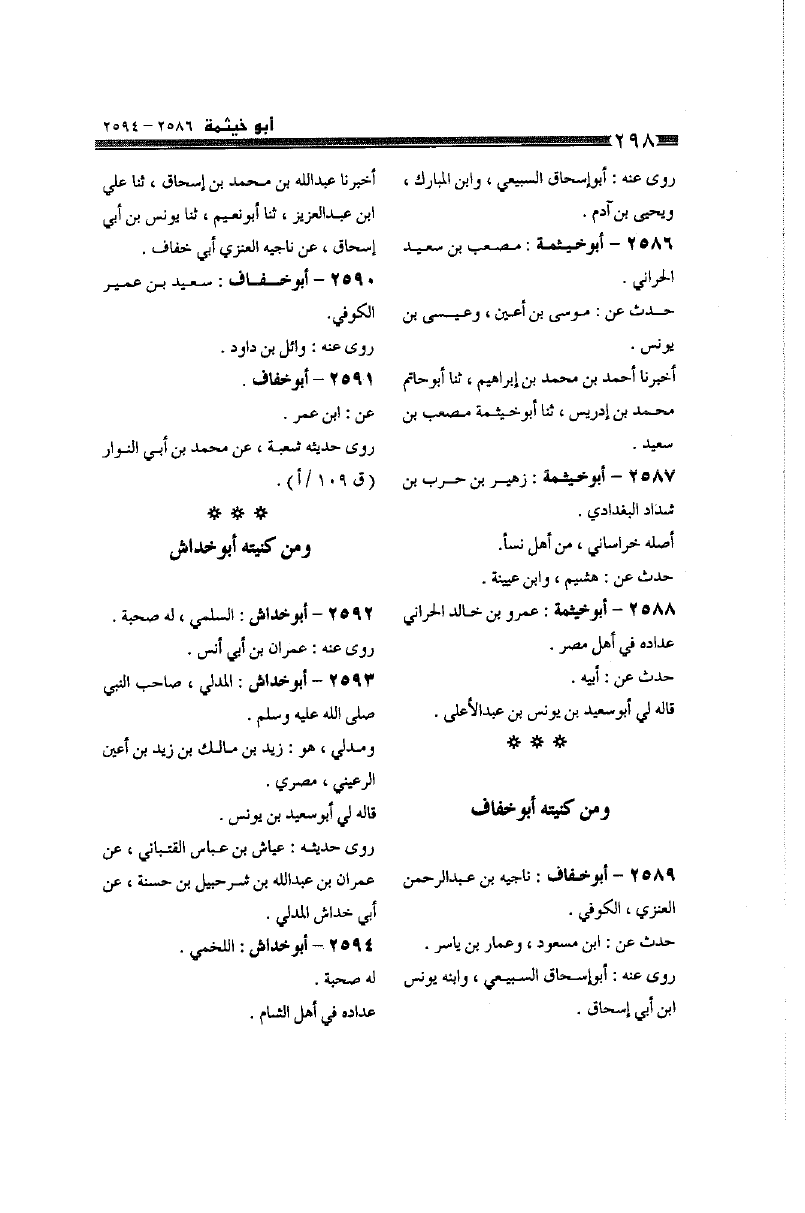 أبو خيثمة ٢٥٨٦ – ٢٥٩٤
٢٩٨
روى عنه : أبوإسحاق السبيعي ، وابن المبارك ،
ويحيى بن آدم .
٢٥٨٦ – أبوخيثمة : مصعب بن سعيد
الحراني .
حدث عن : موسى بن أعين ، وعيسى بن
يونس .
أخبرنا أحمد بن محمد بن إبراهيم ، ثنا أبوحاتم
محمد بن إدريس ، ثنا أبوخيثمة مصعب بن
سعيد .
٢٥٨٧ – أبوخيثمة : زهير بن حرب بن
شداد البغدادي .
أصله خراساني ، من أهل نسأ.
حدث عن : هشيم ، وابن عيينة .
٢٥٨٨ – أبوخيثمة : عمرو بن خالد الحراني
عداده في أهل مصر .
حدث عن : أبيه .
قاله لي أبوسعيد بن يونس بن عبدالأعلى .
* * *
ومن كنيته أبو خفاف
٢٥٨٩ – أبوخفاف : ناجيه بن عبدالرحمن
العنزي ، الكوفي .
حدث عن : ابن مسعود ، وعمار بن ياسر .
روى عنه : أبوإسحاق السبيعي ، وابنه يونس
ابن أبي إسحاق .
أخبرنا عبدالله بن محمد بن إسحاق ، ثنا علي
ابن عبدالعزيز ، ثنا أبونعيم ، ثنا يونس بن أبي
إسحاق ، عن ناجيه العنزي أبي خفاف .
٢٥٩٠ – أبوخفاف : سعيد بن عمير
الكوفي.
روى عنه : وائل بن داود .
٢٥٩١ – أبوخفاف .
عن : ابن عمر .
روى حديثه شعبة ، عن محمد بن أبي النوار
(ق ١٠٩ /أ) .
* * *
ومن كنيته أبو خداش
٢٥٩٢ – أبوخداش : السلمي ، له صحبة .
روى عنه : عمران بن أبي أنس .
٢٥٩٣ – أبوخداش : المدلي ، صاحب النبي
صلى الله عليه وسلم .
ومدلي ، هو : زيد بن مالك بن زيد بن أعين
الرعيني ، مصري .
قاله لي أبوسعيد بن يونس .
روى حديثه : عياش بن عباس القتباني ، عن
عمران بن عبدالله بن شرحبيل بن حسنة ، عن
أبي خداش المدلي .
٢٥٩٤ – أبوخداش : اللخمي .
له صحبة .
عداده في أهل الشام .